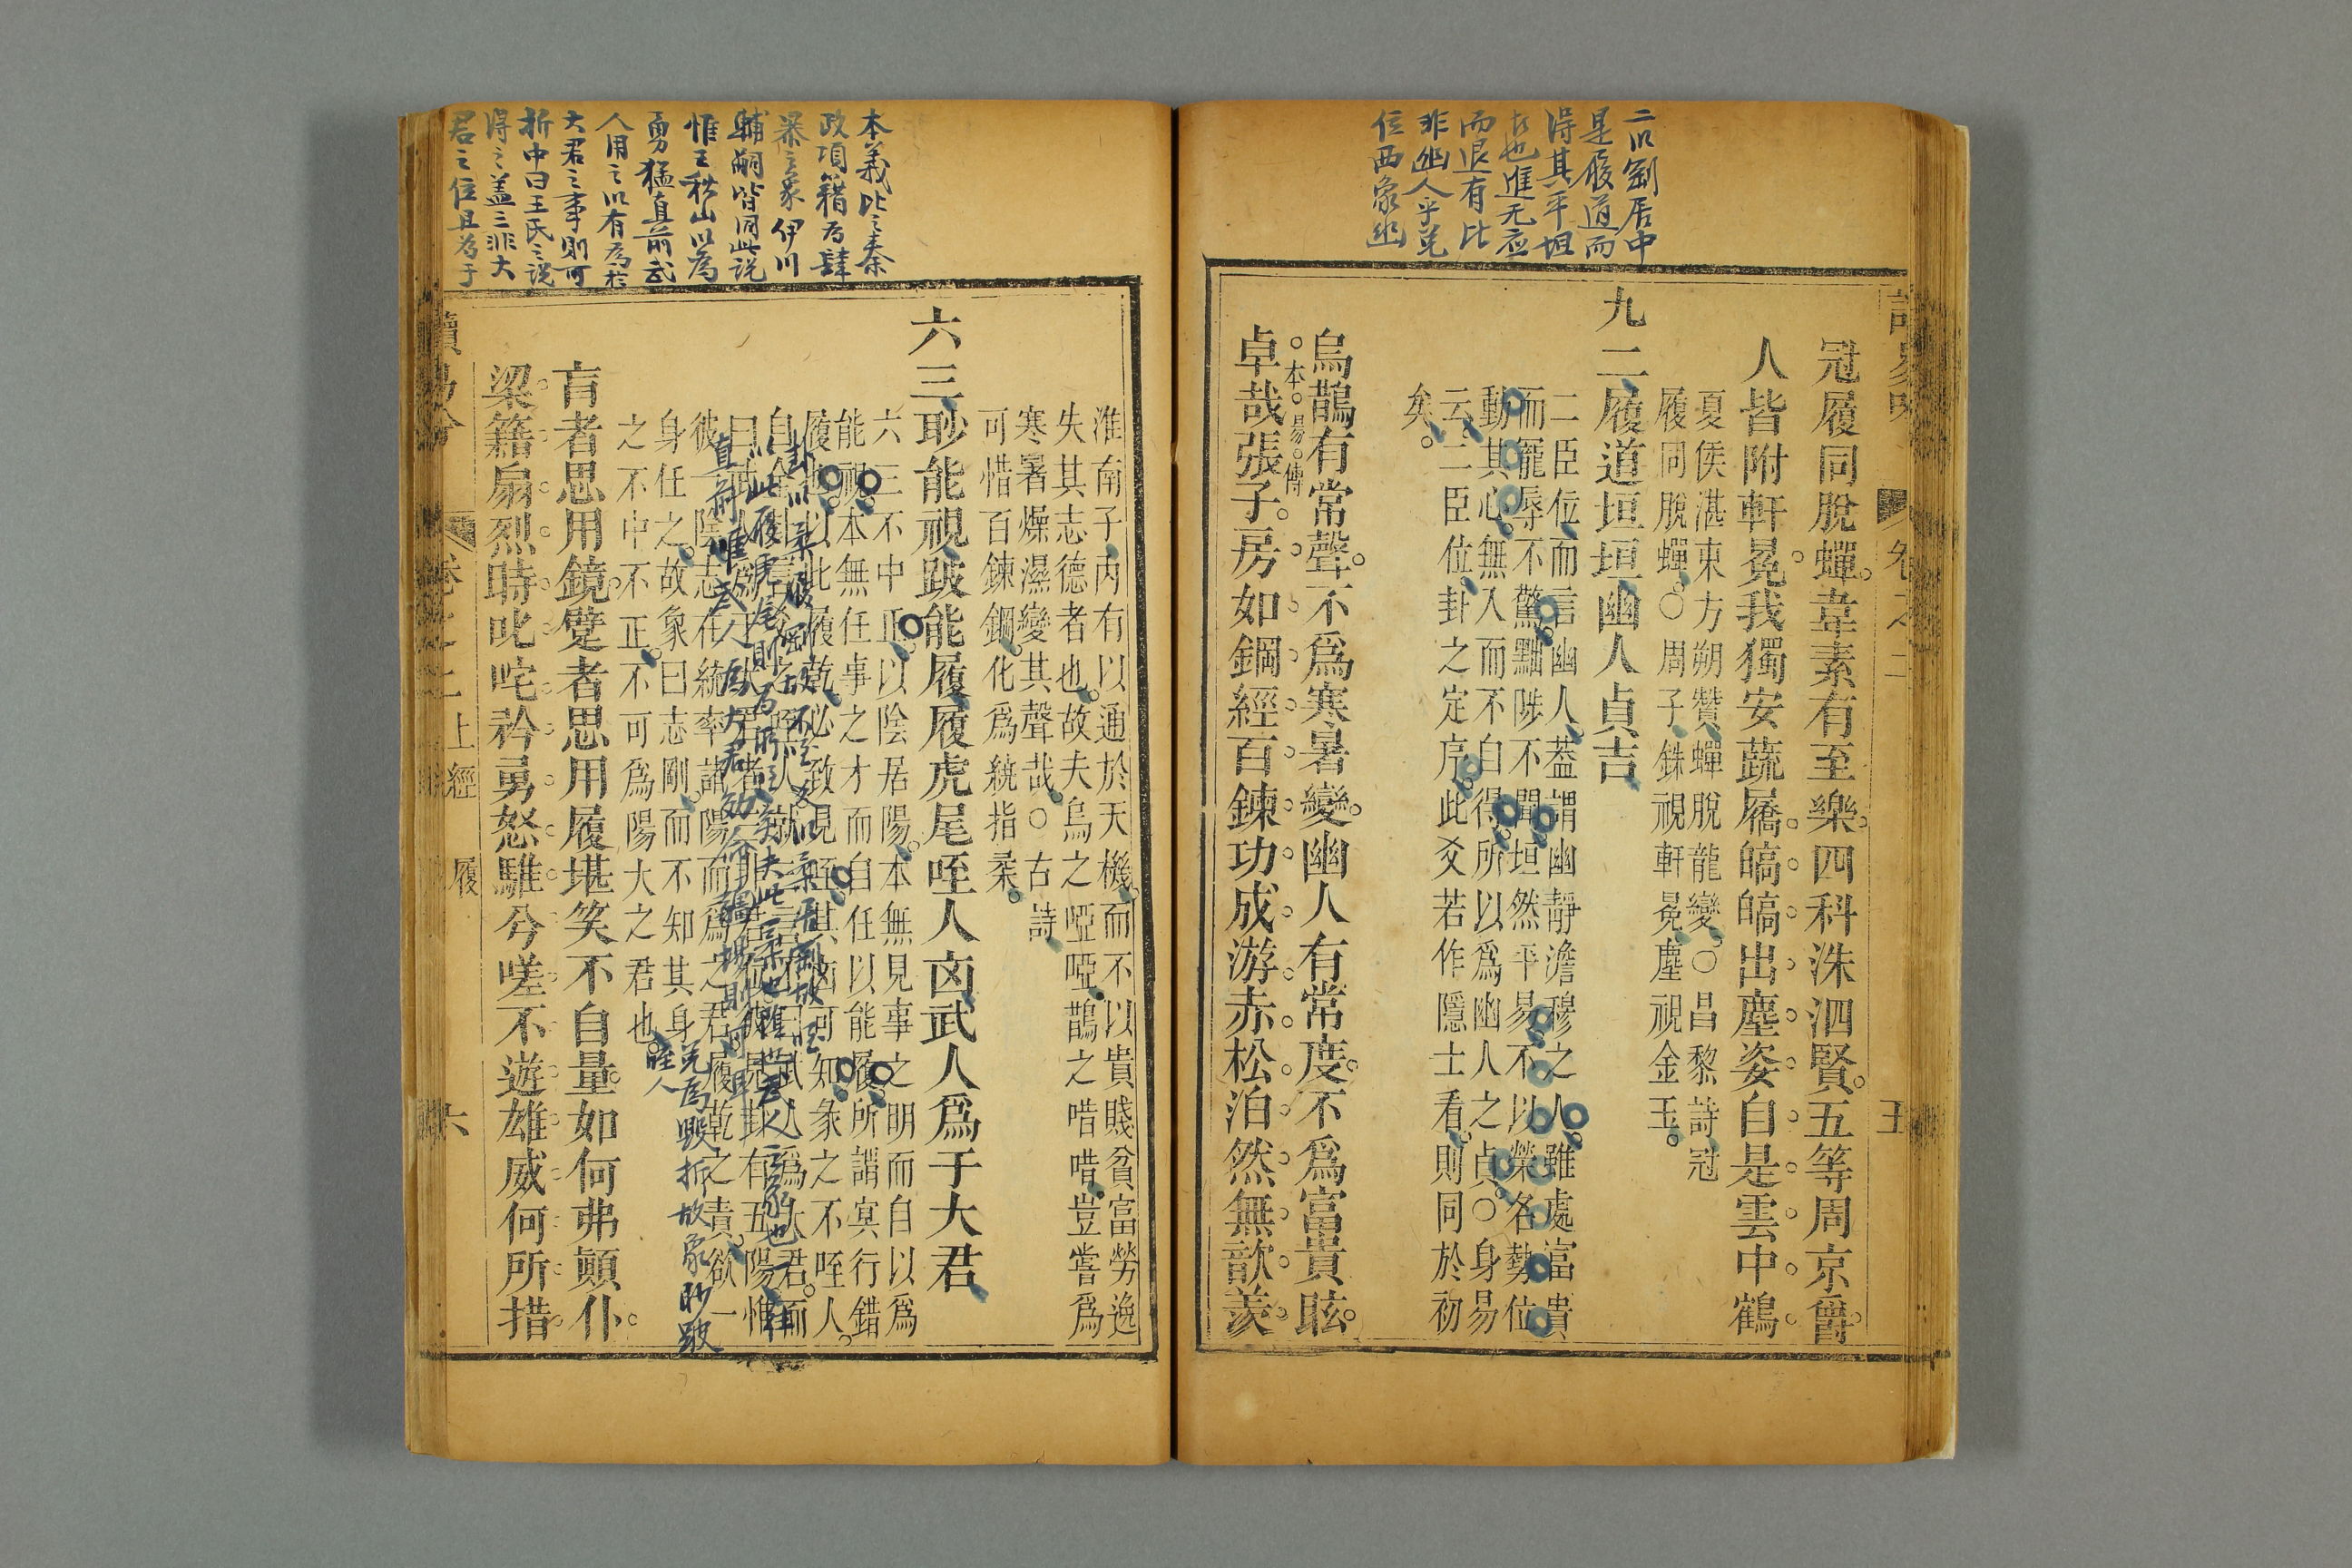 二以剛居中
是履道而
得其平坦
者也進无应
而退有比
非幽人乎兌
位西象幽
冠履同脫蟬韋素有至樂四科洙泗賢五等周京爵
人皆附軒冕我獨安蔬屩皜皜出塵姿自是雲中鶴
夏侯湛東方朔贊蟬脫龍變○昌黎詩冠
履同脫蟬○周子銖視軒冕塵視金玉
九二履道坦坦幽人貞吉
二臣位而言幽人葢謂幽靜澹穆之人雖處富貴
而寵辱不驚黜陟不聞坦然平易不以榮名勢位
動其心無入而不自得所以爲幽人之貞○身易
云二臣位卦之定序此爻若作隱士看則同於初
矣
烏鵲有常聲不爲寒暑變幽人有常度不爲富貴眩
本易傳
卓哉張子房如鋼經百鍊功成游赤松泊然無歆羨
五
淮南子丙有以通於天機而不以貴賤貧富勞逸
失其志德者也故夫烏之啞啞鵲之唶唶豈嘗爲
寒暑燥濕變其聲哉○古詩
可惜百鍊鋼化爲繞指柔
本義比之秦
政項籍为肆
暴之象伊川
輔嗣皆同此説
惟王秋山以為
勇猛直前武
人用之以有為於
大君之事則可
折中曰王氏之説
得之盖三非大
君之位且为于
六三眇能視跛能履履虎尾咥人凶武人爲于大君
六三不中正以陰居陽本無見事之明而自以爲
能視本無任事之才而自任以能履所謂冥行錯
履也以此履乾必致見咥其凶可知彖之不咥人
彼一陰志在統率諸陽而爲之君履乾之責欲一
身任之故象曰志剛而不知其身
之不中不正不可爲陽大之君也
兌為毀折故象眇跛
咥人
肓者思用鏡躄者思用履堪笑不自量如何弗顚仆
梁籍扇烈時叱咤矜勇怒騅兮嗟不逝雄威何所措
讀易吟
卷之二
上經
履
六